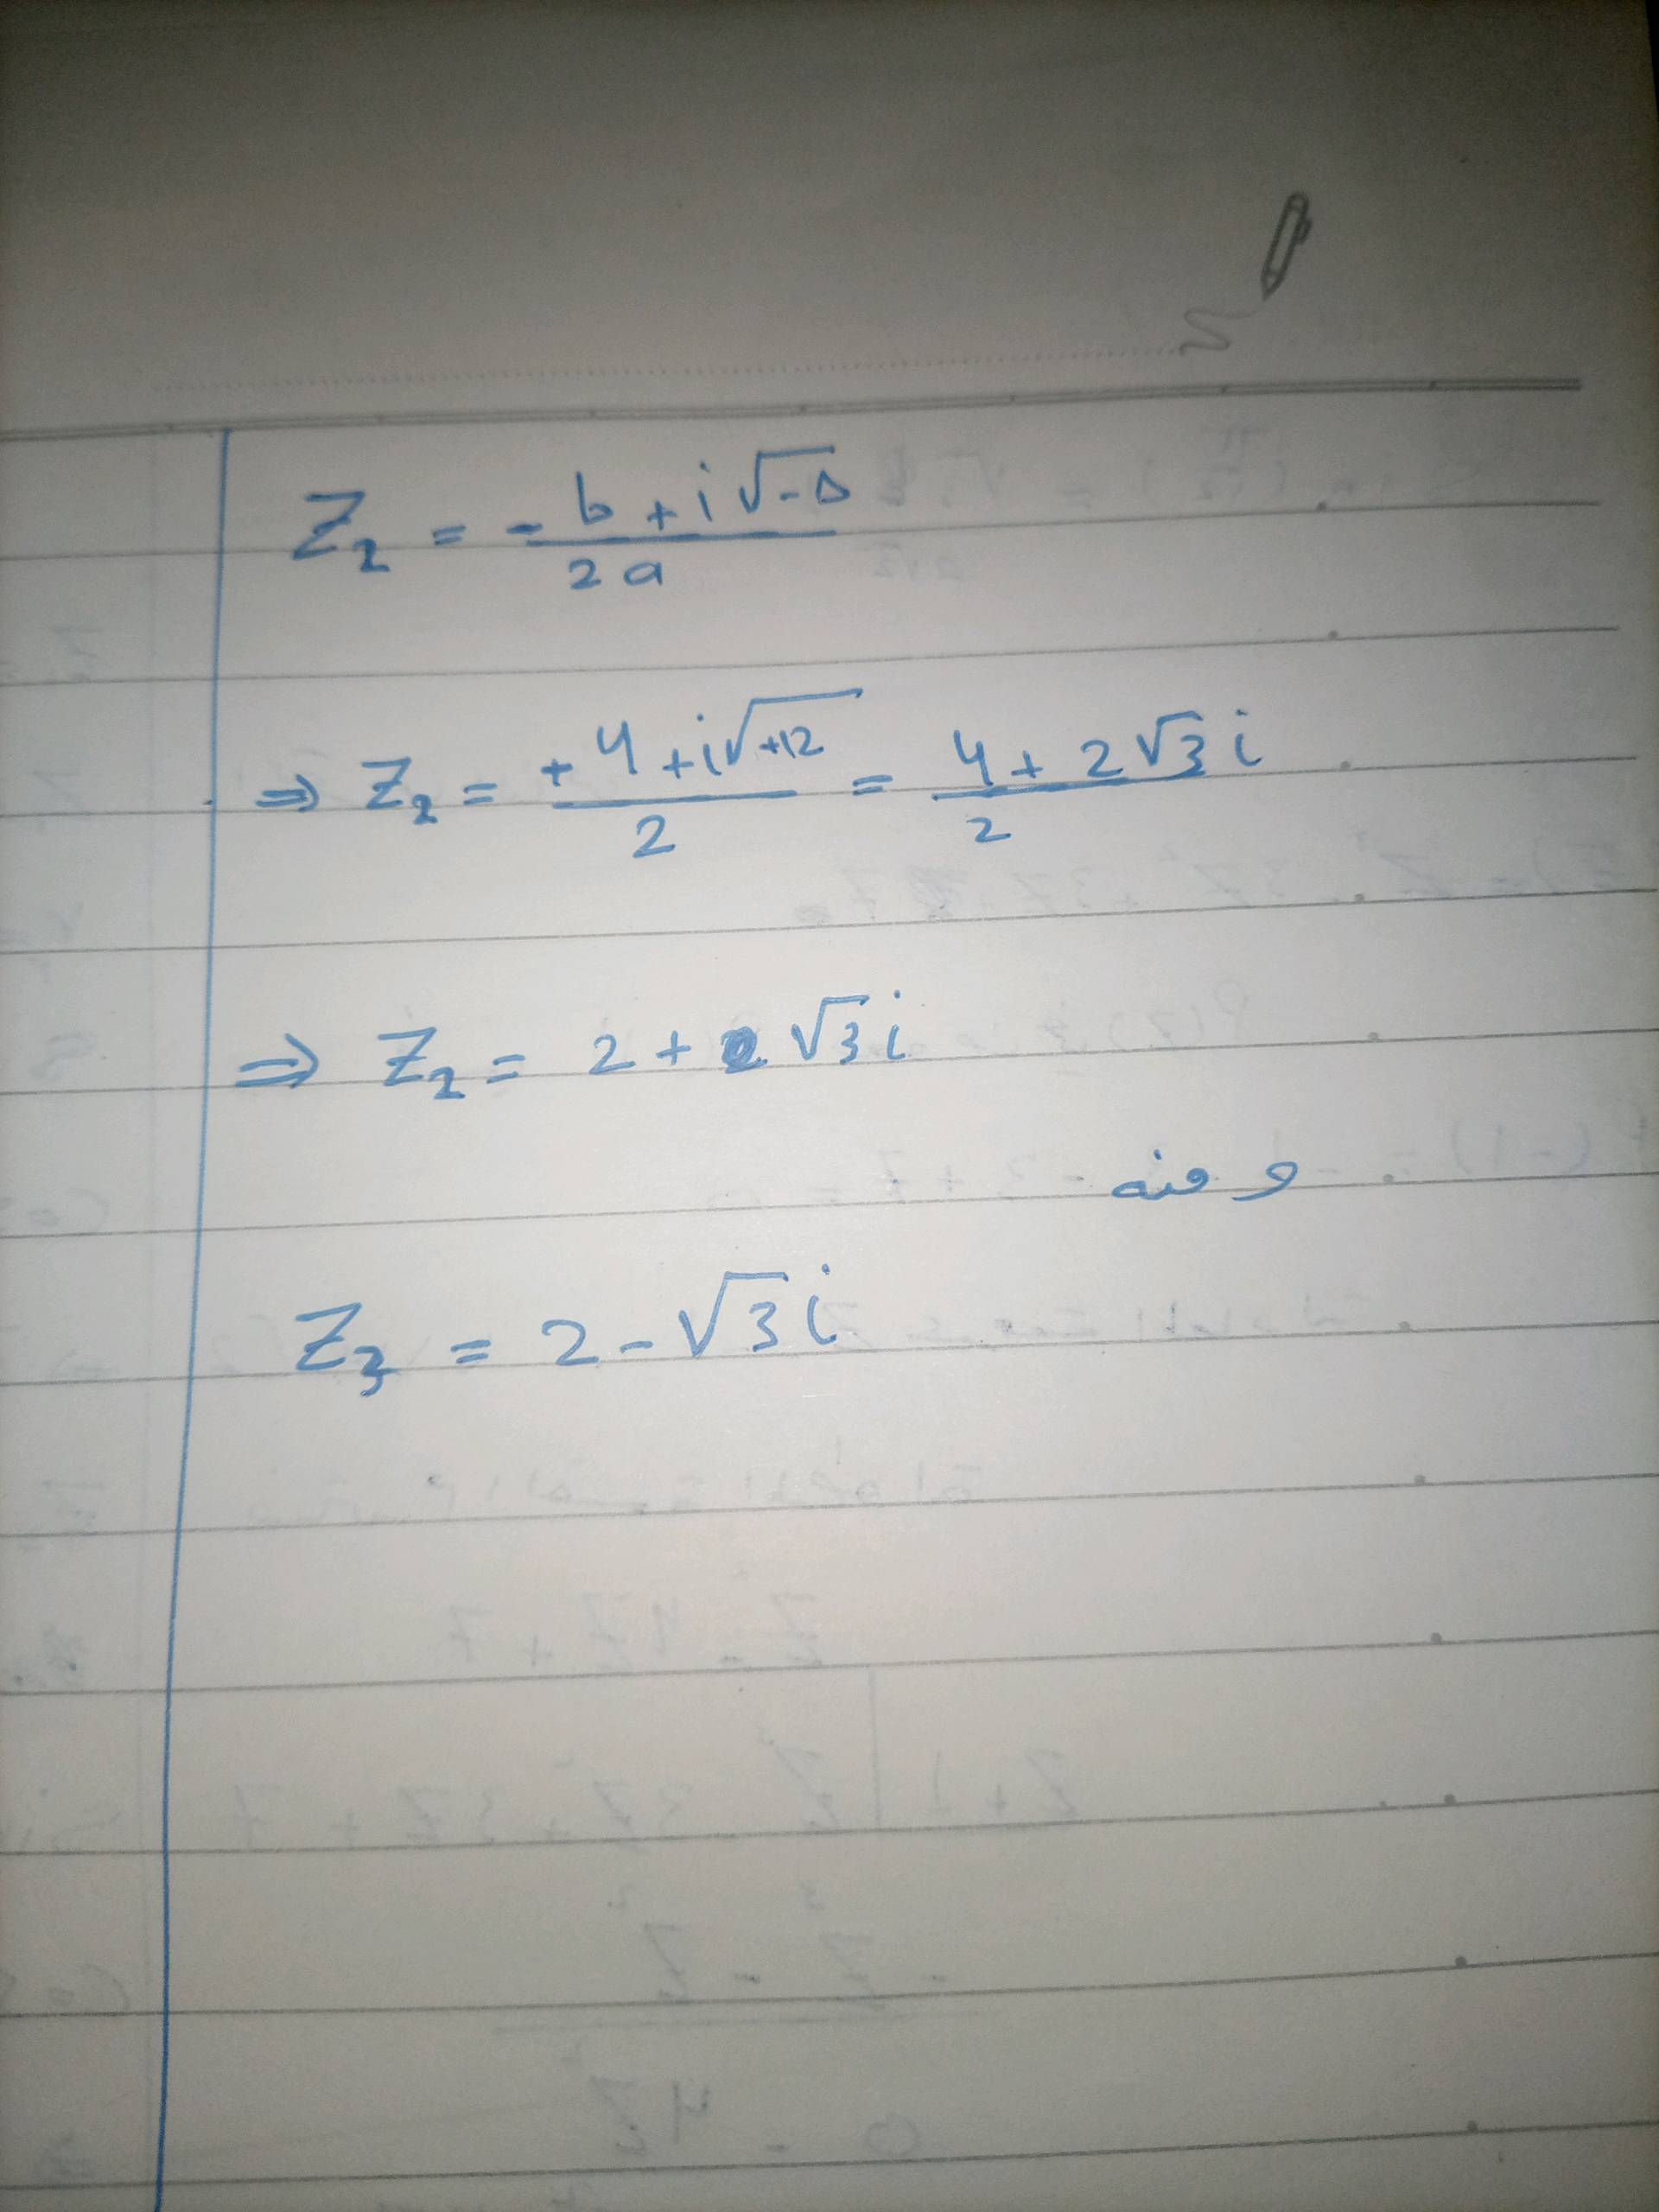 Z₂ = -b + i√-Δ / 2a
⇒ Z₂ = +4 + i√+12 / 2 = 4 + 2√3 i / 2
⇒ Z₂ = 2 + √3 i
و منه
Z₃ = 2 - √3 i